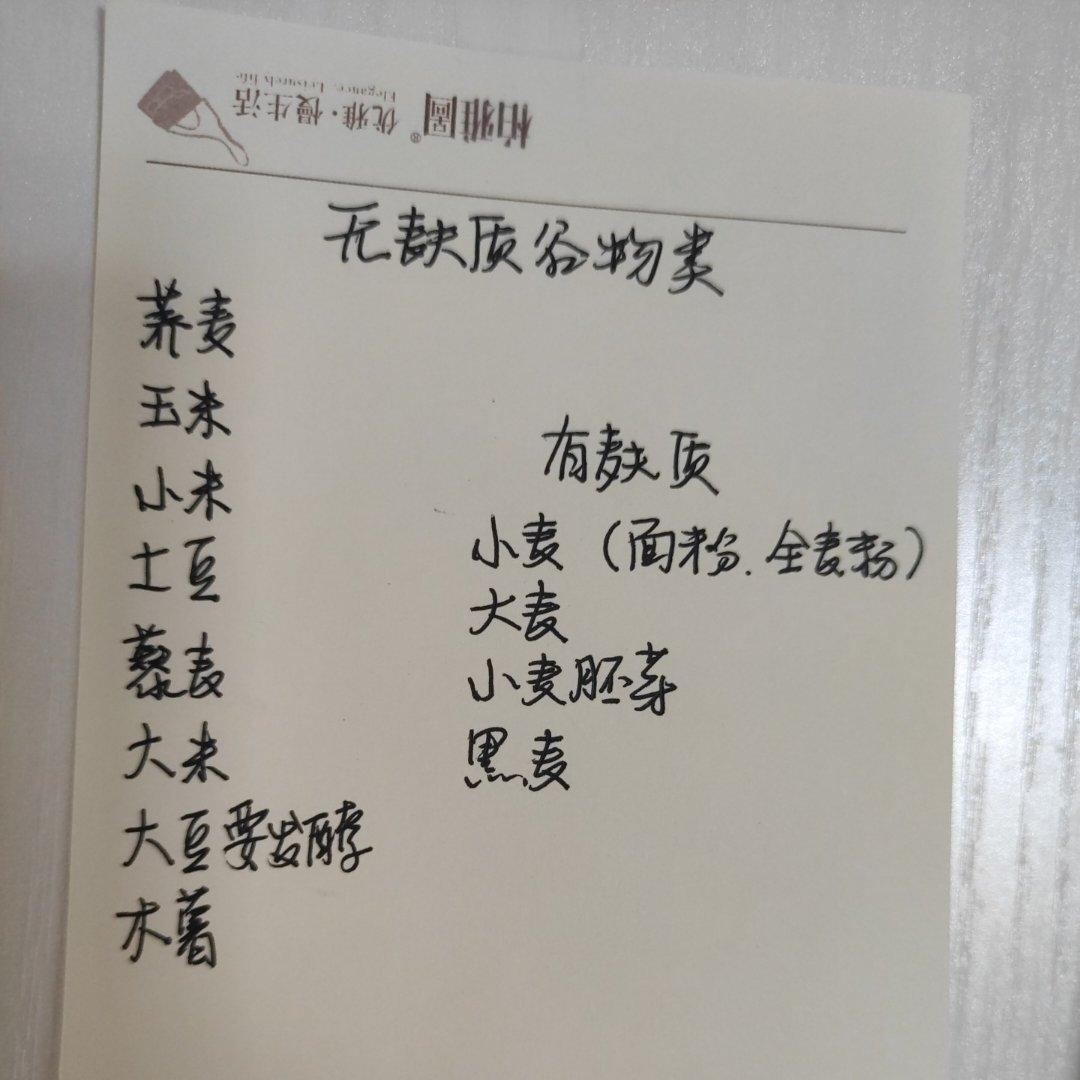 柏雅圖® 优雅·慢生活
Elegance, Leisurely life
无麸质谷物类
荞麦
玉米
小米
土豆
藜麦
大米
大豆要发酵
木薯
有麸质
小麦（面粉、全麦粉）
大麦
小麦胚芽
黑麦